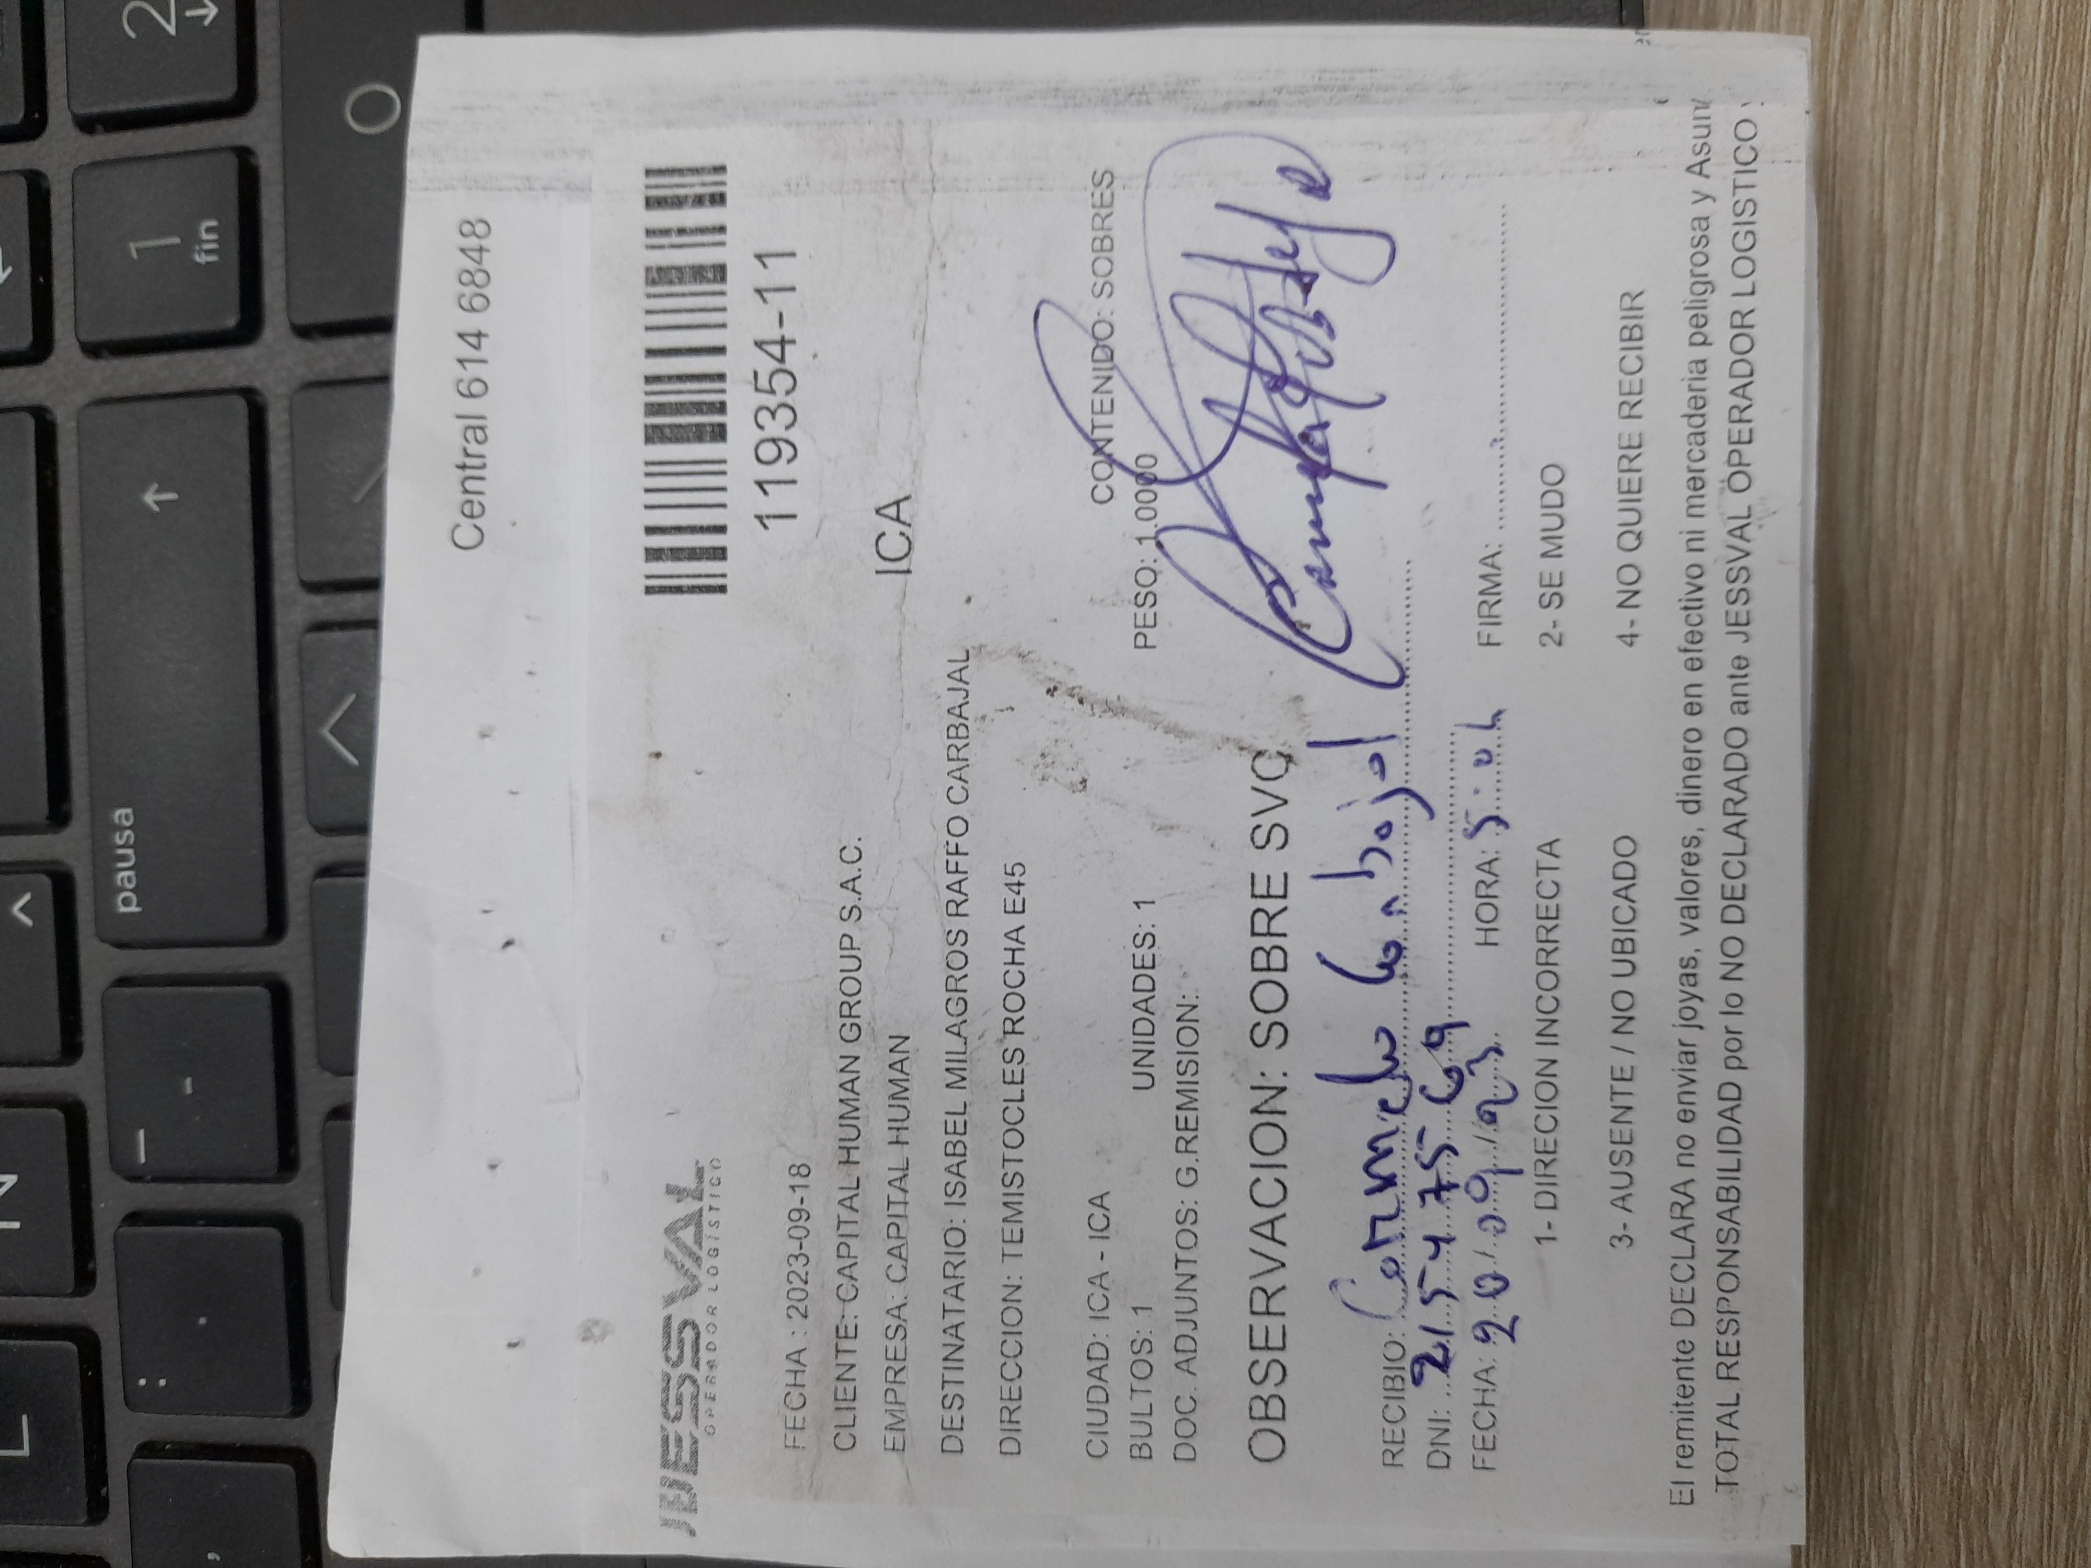 L N ^
: . — - pausa ↑ 1 fin 2 ↓
,
0
Central 614 6848
JESSVAL
OPERADOR LOGÍSTICO
119354-11
FECHA : 2023-09-18
CLIENTE: CAPITAL HUMAN GROUP S.A.C.
EMPRESA: CAPITAL HUMAN
ICA
DESTINATARIO: ISABEL MILAGROS RAFFO CARBAJAL
DIRECCION: TEMISTOCLES ROCHA E45
CIUDAD: ICA - ICA
CONTENIDO: SOBRES
BULTOS: 1 UNIDADES: 1 PESO: 1.0000
DOC. ADJUNTOS: G.REMISION:
OBSERVACION: SOBRE SVC
RECIBIO: Carmela Carbajal
DNI: 21547569
FECHA: 20/09/23 HORA: 5:0 FIRMA:
1- DIRECION INCORRECTA 2- SE MUDO
3- AUSENTE / NO UBICADO 4- NO QUIERE RECIBIR
El remitente DECLARA no enviar joyas, valores, dinero en efectivo ni mercaderia peligrosa y Asum
TOTAL RESPONSABILIDAD por lo NO DECLARADO ante JESSVAL OPERADOR LOGISTICO y